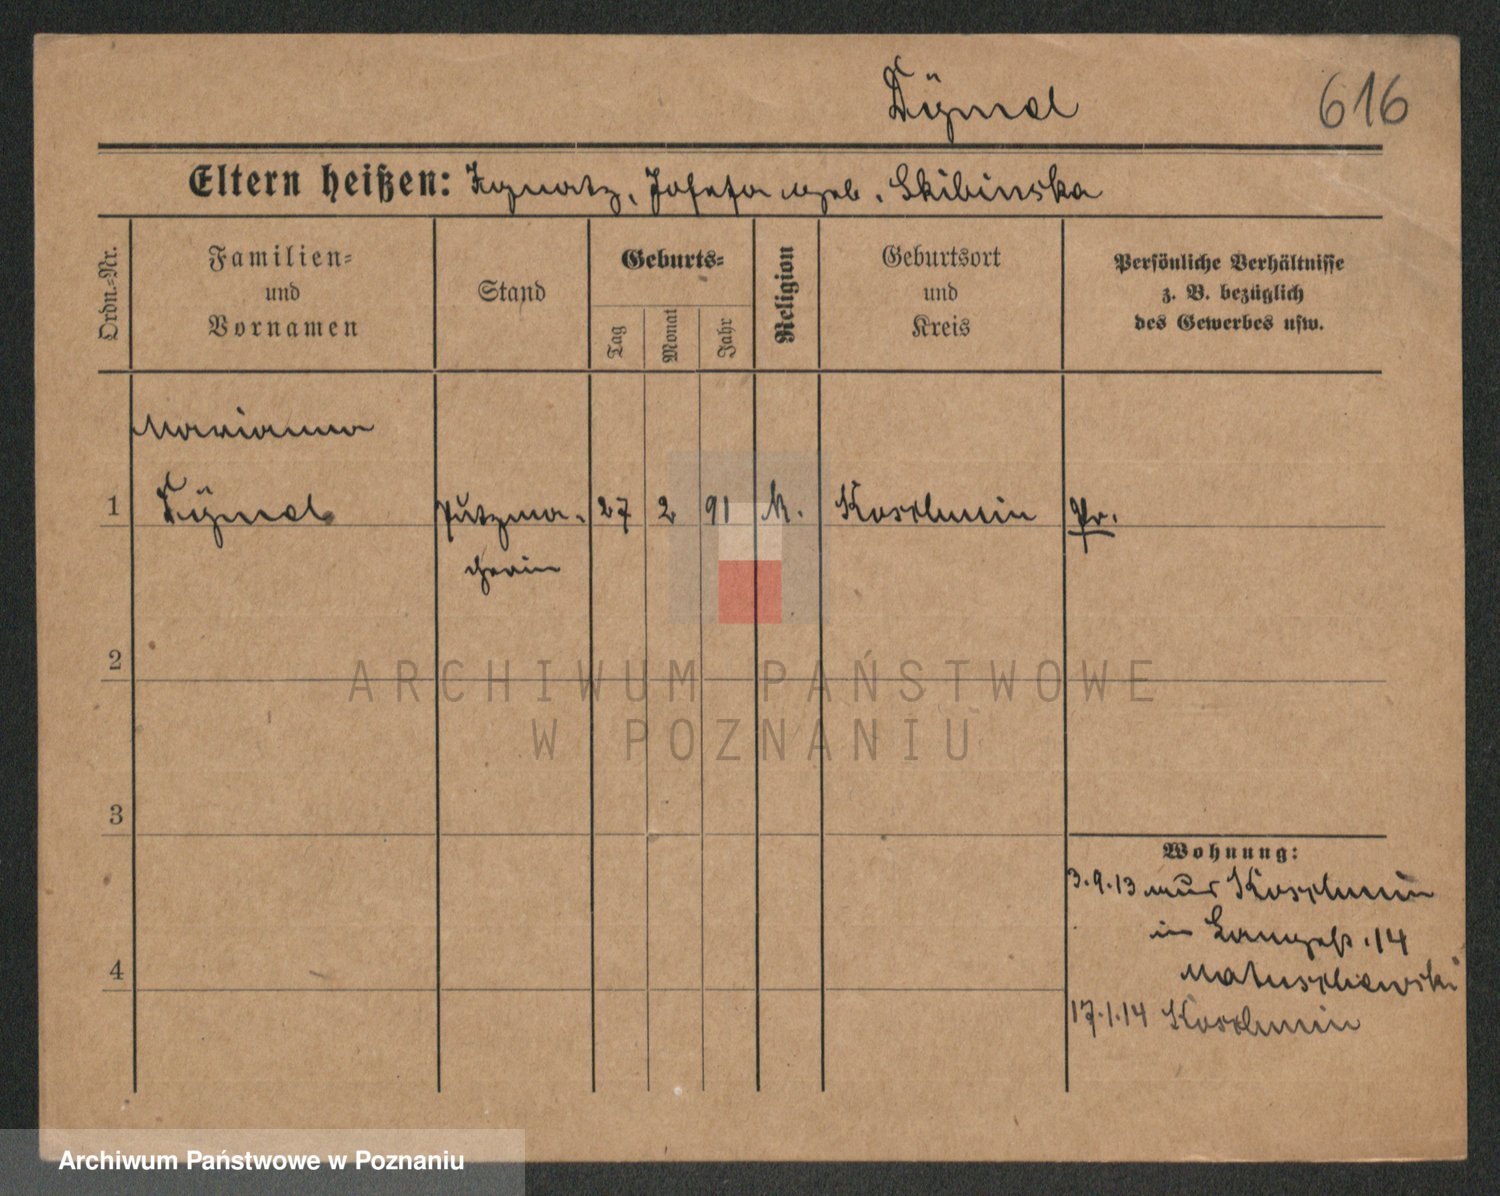 Dÿmel
616
Eltern heißen: Ignatz, Josefa geb. Skibinska
Ordn.-Nr.
Familien-
und
Vornamen
Stand
Geburts-
Tag
Monat
Jahr
Religion
Geburtsort
und
Kreis
Persönliche Verhältnisse
z. B. bezüglich
des Gewerbes usw.
Marianna
1 Putzma- 27 2 91 k. Koschmin Pr.
cherin
2
3
4
Wohnung:
3.9.13 aus Koschmin
in 14
Matuschewski
17.1.14 Koschmin
ARCHIWUM PAŃSTWOWE
W POZNANIU
Archiwum Państwowe w Poznaniu